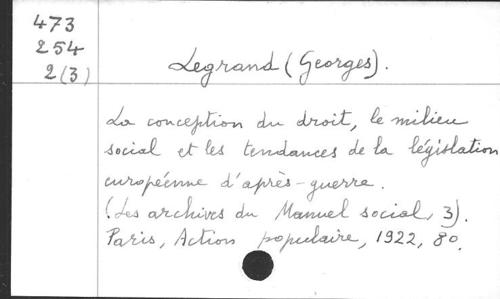 473
254
2(3)
Legrand (Georges).
La conception du droit, le milieu
social et les tendances de la législation
européenne d'après-guerre.
(Les archives du Manuel social, 3).
Paris, Action populaire, 1922, 8º.